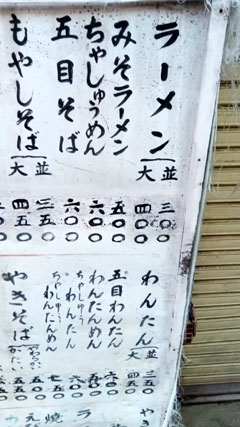 ラーメン 並 三〇〇
大 四〇〇
みそラーメン 五〇〇
ちゃしゅうめん 六〇〇
五目そば 六〇〇
もやしそば 並 三五〇
大 四五〇
わんたん 並 三五〇
大 四五〇
五目わんたん
わんたんめん
ちゃしゅーわんたん
ちゃしゅーわんたんめん
やきそば やわらかい
かたい
やき
ラ
焼